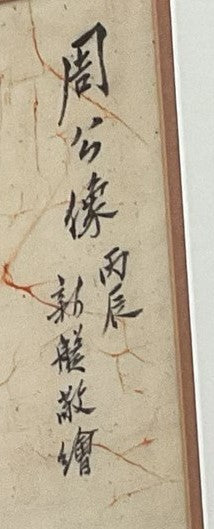 周公像
丙辰
新艖敬繪